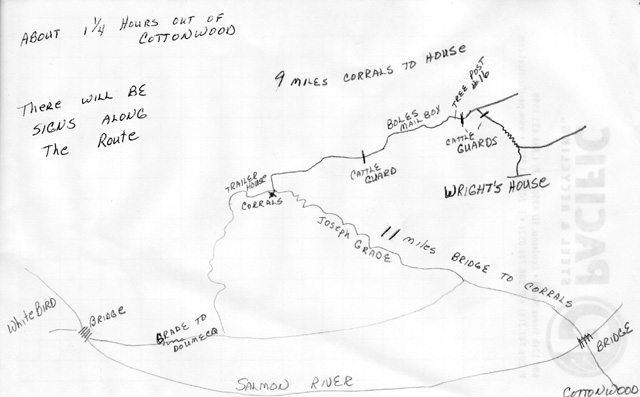 ABOUT 1 1/4 HOURS OUT OF
COTTONWOOD
9 MILES CORRALS TO HOUSE
THERE WILL BE
SIGNS ALONG
The Route
BOLES
MAIL BOX
TREE POST
#16
CATTLE
GUARDS
CATTLE
GUARD
TRAILER
HOUSE
CORRALS
WRIGHT'S HOUSE
JOSEPH GRADE
11 MILES BRIDGE TO CORRALS
WHITE BIRD
BRIDGE
GRADE TO
DOUMECQ
BRIDGE
SALMON RIVER
COTTONWOOD
PACIFIC
STEEL & RECYCLING